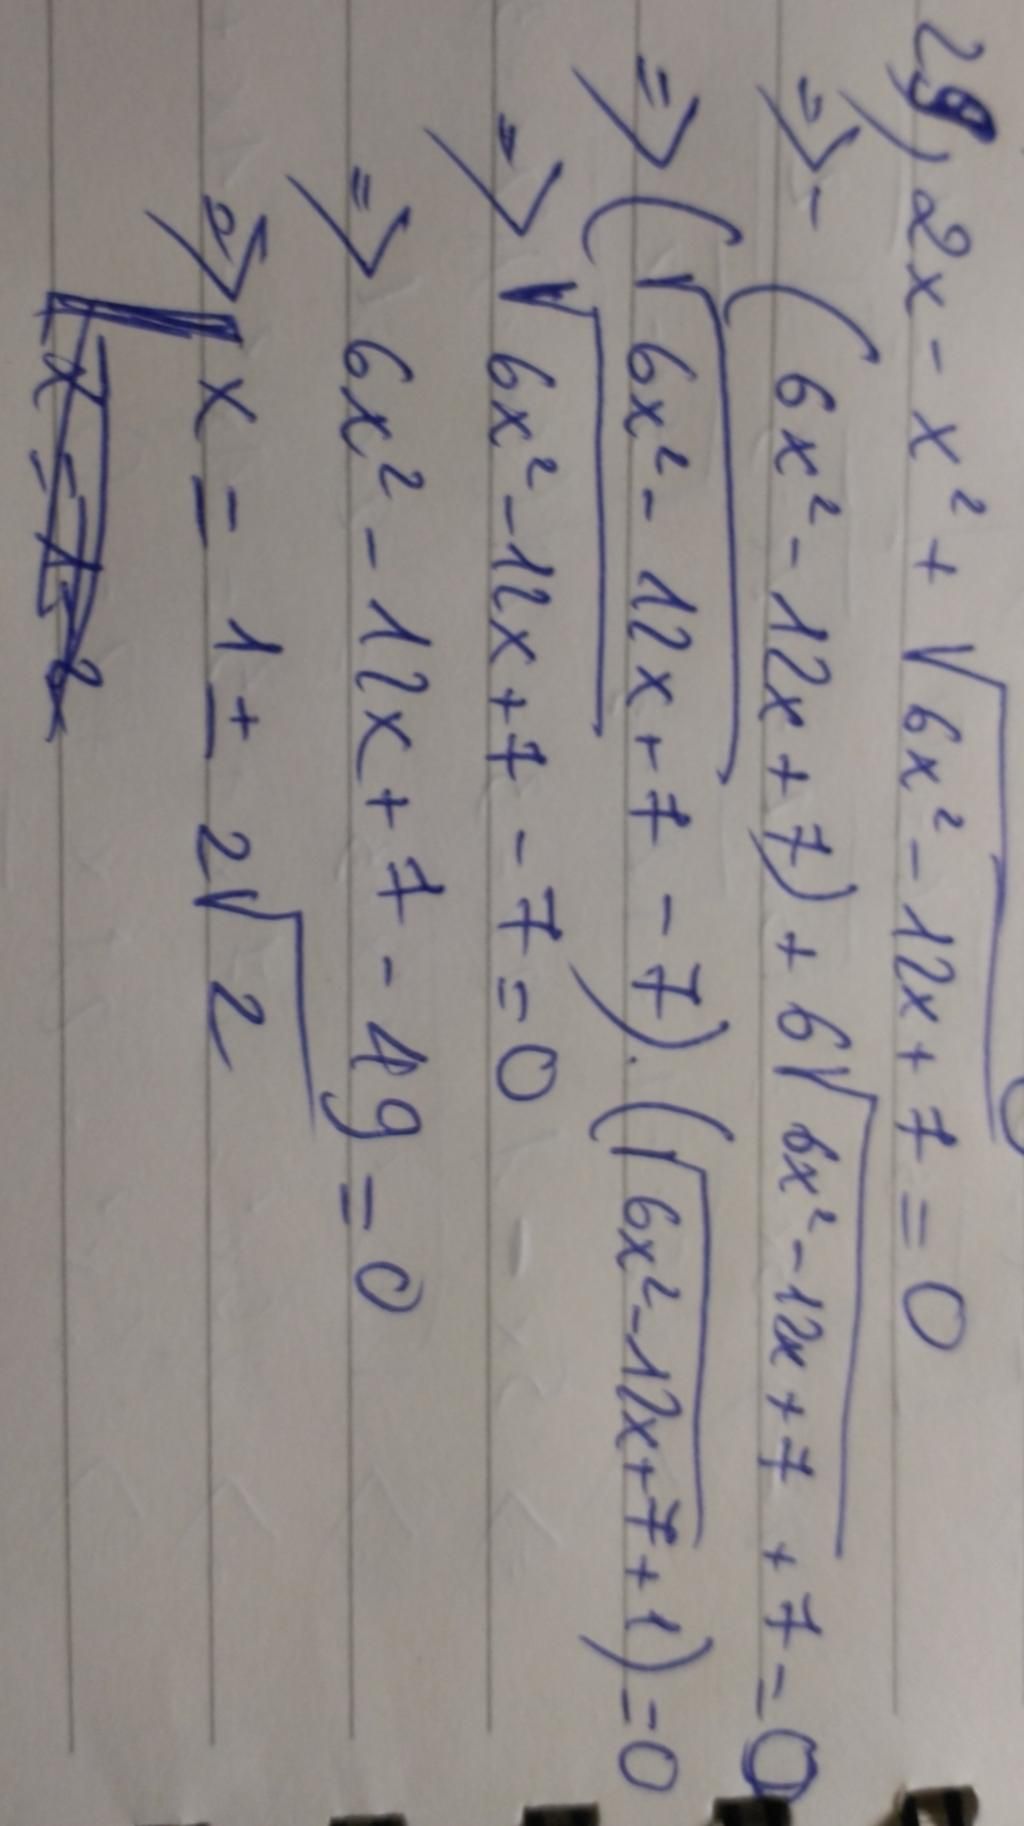 29) 2x - x² + √(6x² - 12x + 7) = 0
=> - (6x² - 12x + 7) + 6√(6x² - 12x + 7) + 7 = 0
=> (√(6x² - 12x + 7) - 7).(√(6x² - 12x + 7) + 1) = 0
=> √(6x² - 12x + 7) - 7 = 0
=> 6x² - 12x + 7 - 49 = 0
=> x = 1 ± 2√2